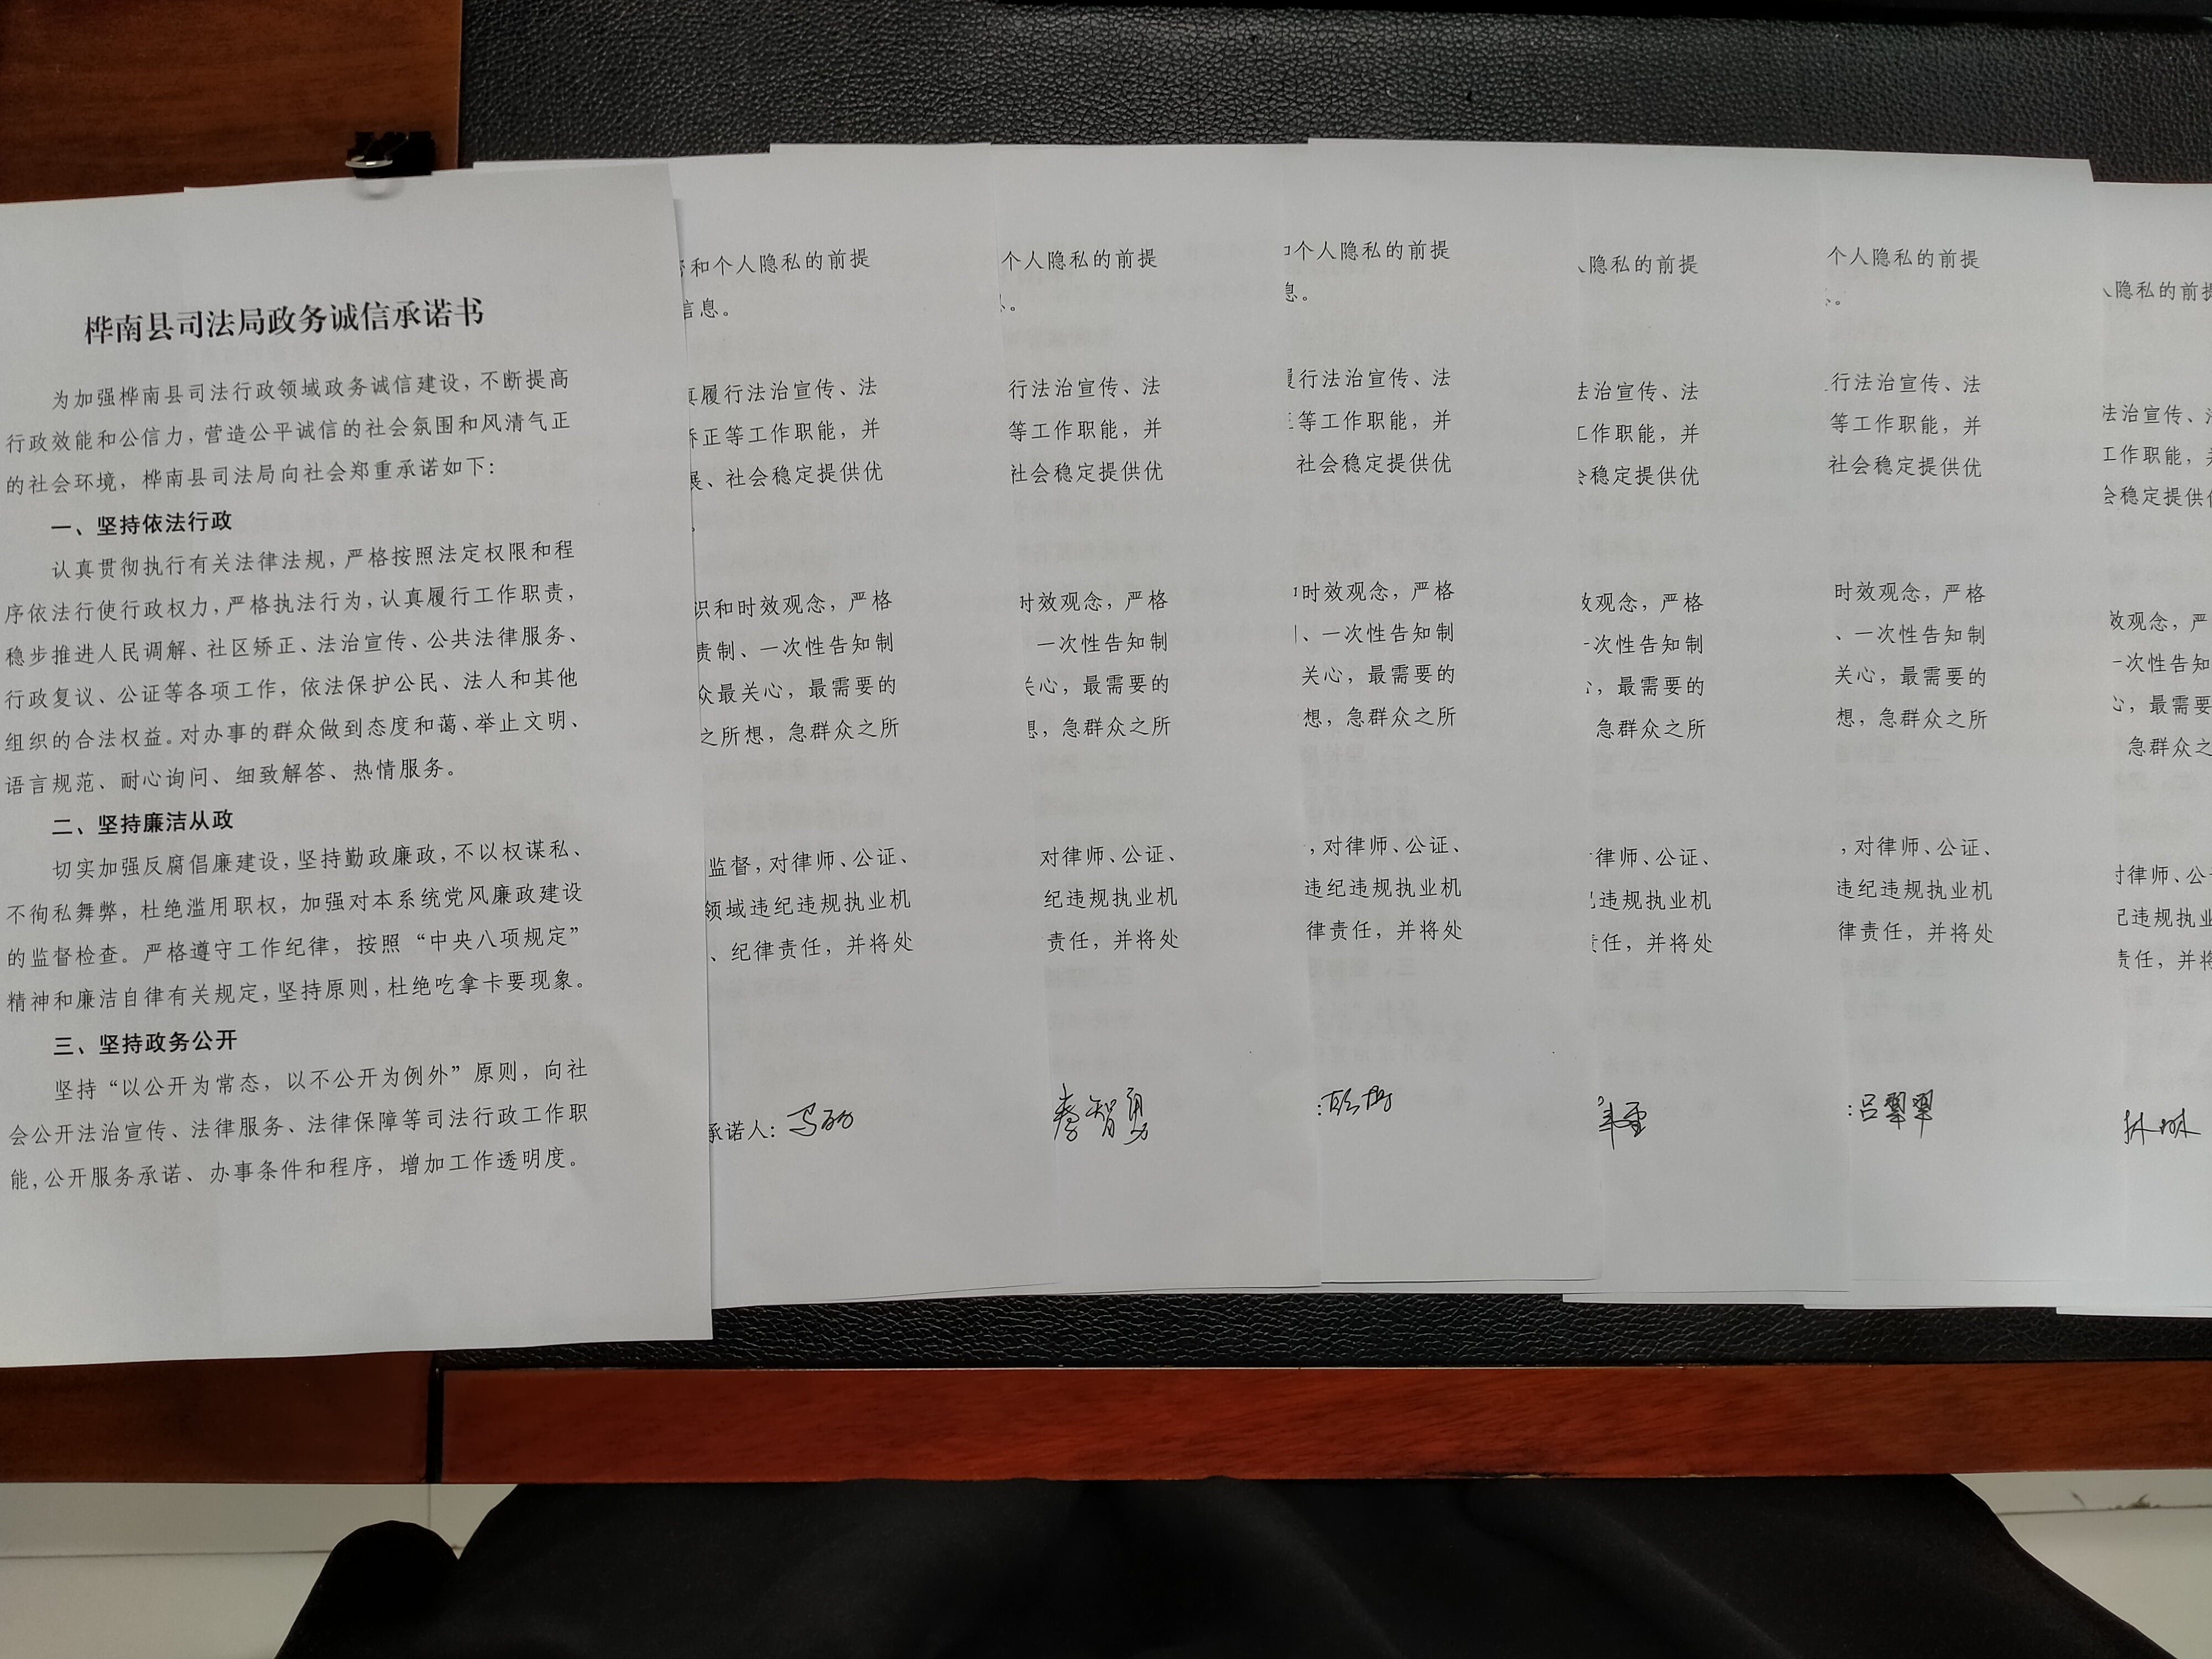 桦南县司法局政务诚信承诺书
为加强桦南县司法行政领域政务诚信建设，不断提高
行政效能和公信力，营造公平诚信的社会氛围和风清气正
的社会环境，桦南县司法局向社会郑重承诺如下：
一、坚持依法行政
认真贯彻执行有关法律法规，严格按照法定权限和程
序依法行使行政权力，严格执法行为，认真履行工作职责，
稳步推进人民调解、社区矫正、法治宣传、公共法律服务、
行政复议、公证等各项工作，依法保护公民、法人和其他
组织的合法权益。对办事的群众做到态度和蔼、举止文明、
语言规范、耐心询问、细致解答、热情服务。
二、坚持廉洁从政
切实加强反腐倡廉建设，坚持勤政廉政，不以权谋私、
不徇私舞弊，杜绝滥用职权，加强对本系统党风廉政建设
的监督检查。严格遵守工作纪律，按照“中央八项规定”
精神和廉洁自律有关规定，坚持原则，杜绝吃拿卡要现象。
三、坚持政务公开
坚持“以公开为常态，以不公开为例外”原则，向社
会公开法治宣传、法律服务、法律保障等司法行政工作职
能，公开服务承诺、办事条件和程序，增加工作透明度。
和个人隐私的前提
信息。
真履行法治宣传、法
矫正等工作职能，并
展、社会稳定提供优
识和时效观念，严格
责制、一次性告知制
众最关心，最需要的
之所想，急群众之所
监督，对律师、公证、
领域违纪违规执业机
、纪律责任，并将处
承诺人：
个人隐私的前提
行法治宣传、法
等工作职能，并
社会稳定提供优
时效观念，严格
一次性告知制
关心，最需要的
想，急群众之所
对律师、公证、
纪违规执业机
责任，并将处
李智勇
和个人隐私的前提
息。
履行法治宣传、法
等工作职能，并
社会稳定提供优
时效观念，严格
、一次性告知制
关心，最需要的
想，急群众之所
，对律师、公证、
违纪违规执业机
律责任，并将处
人隐私的前提
法治宣传、法
工作职能，并
会稳定提供优
效观念，严格
一次性告知制
心，最需要的
急群众之所
律师、公证、
违规执业机
责任，并将处
个人隐私的前提
行法治宣传、法
等工作职能，并
社会稳定提供优
时效观念，严格
、一次性告知制
关心，最需要的
想，急群众之所
，对律师、公证、
违纪违规执业机
律责任，并将处
：吕翠翠
人隐私的前提
法治宣传、法
工作职能，并
会稳定提供优
效观念，严
一次性告知
心，最需要
急群众之
对律师、公
纪违规执业
责任，并将
林琳